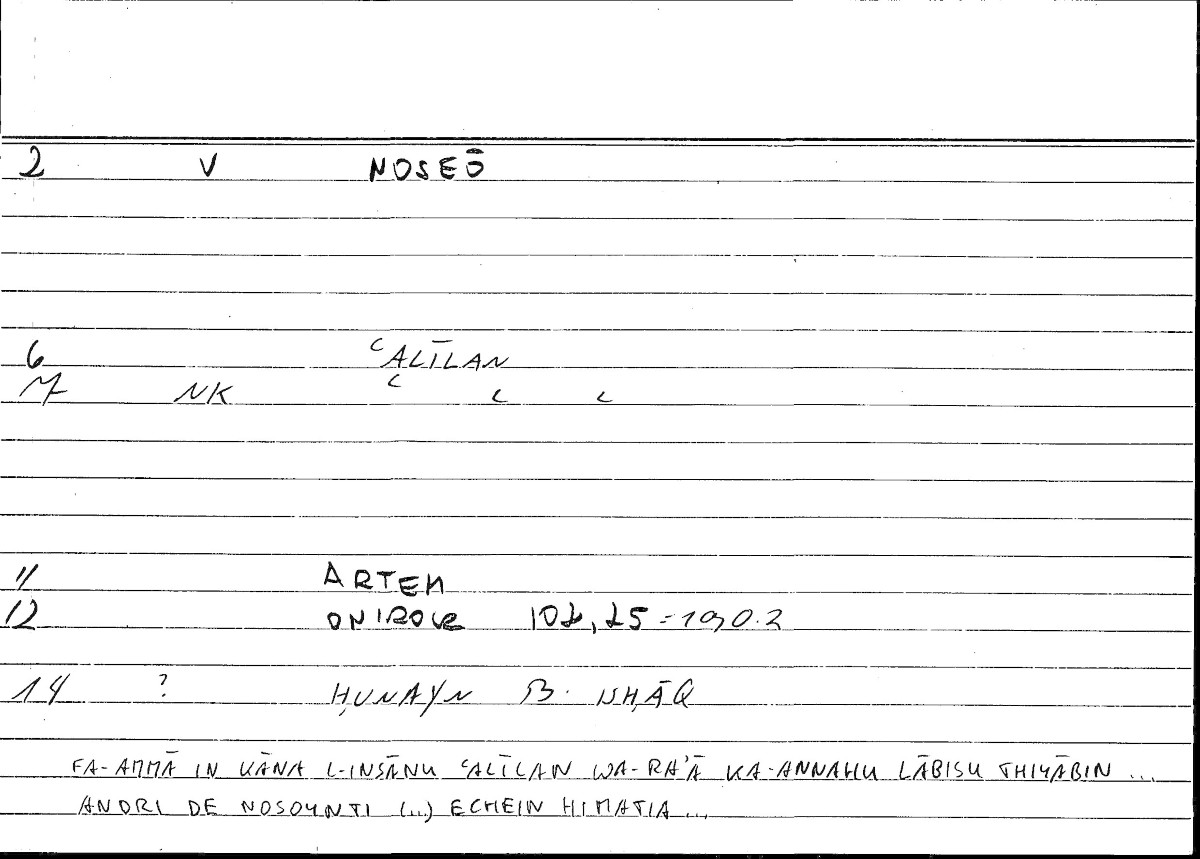 2 V NOSEŌ
6 ʿALĪLAN
NK ʿ ʿ ʿ
11 ARTEM
12 ONIROCR = 190.2
14 ? ḤUNAYN B. ISḤĀQ
FA-AMMĀ IN KĀNA L-INSĀNU ʿALĪLAN WA-RA'Ā KA-ANNAHU LĀBISU THIYĀBIN ...
ANDRI DE NOSOYNTI (...) ECHEIN HIMATIA ...